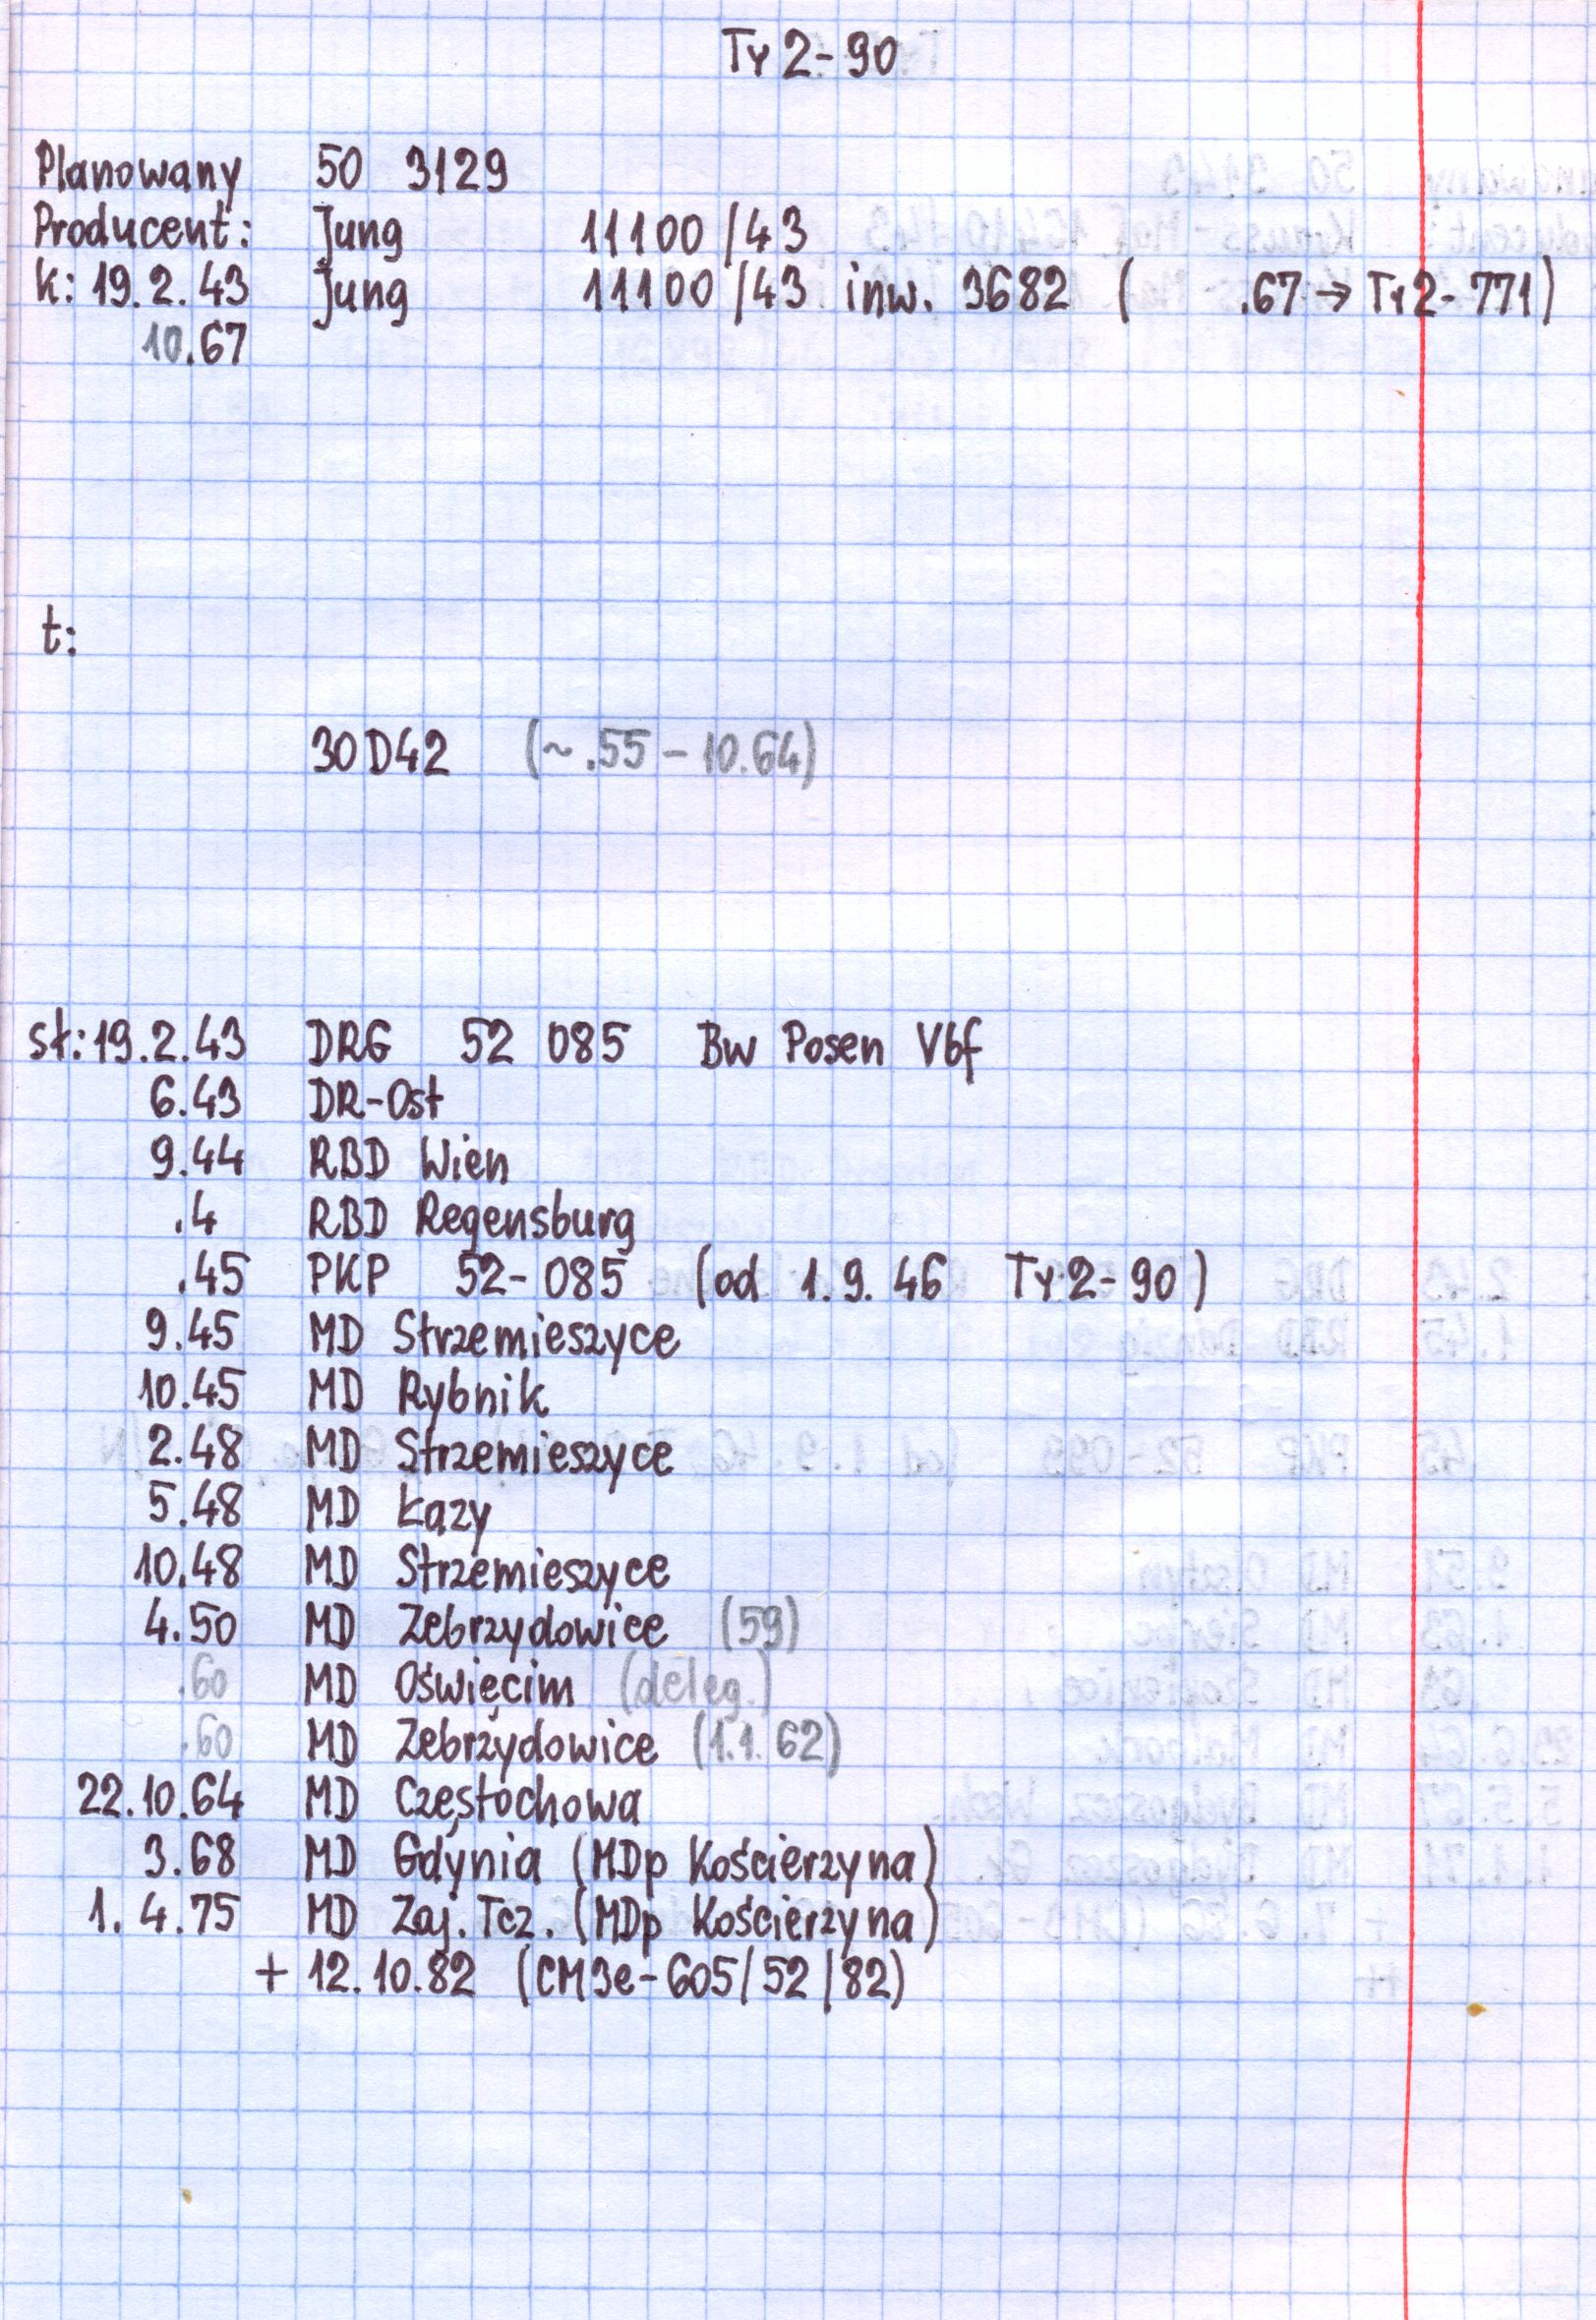 Ty2-90
Planowany 50 3129
Producent: Jung 11100/43
k: 19.2.43 Jung 11100/43 inw. 3682 ( .67 → Ty2-771)
10.67
t:
30D42 (~.55 - 10.64)
st: 19.2.43 DRG 52 085 Bw Posen Vbf
6.43 DR-Ost
9.44 RBD Wien
.4 RBD Regensburg
.45 PKP 52-085 (od 1.9.46 Ty2-90)
9.45 MD Strzemieszyce
10.45 MD Rybnik
2.48 MD Strzemieszyce
5.48 MD Łazy
10.48 MD Strzemieszyce
4.50 MD Zebrzydowice (59)
.60 MD Oświęcim (deleg.)
.60 MD Zebrzydowice (1.1.62)
22.10.64 MD Częstochowa
3.68 MD Gdynia (MDp Kościerzyna)
1.4.75 MD Zaj.Tcz. (MDp Kościerzyna)
+ 12.10.82 (CM3e-605/52/82)